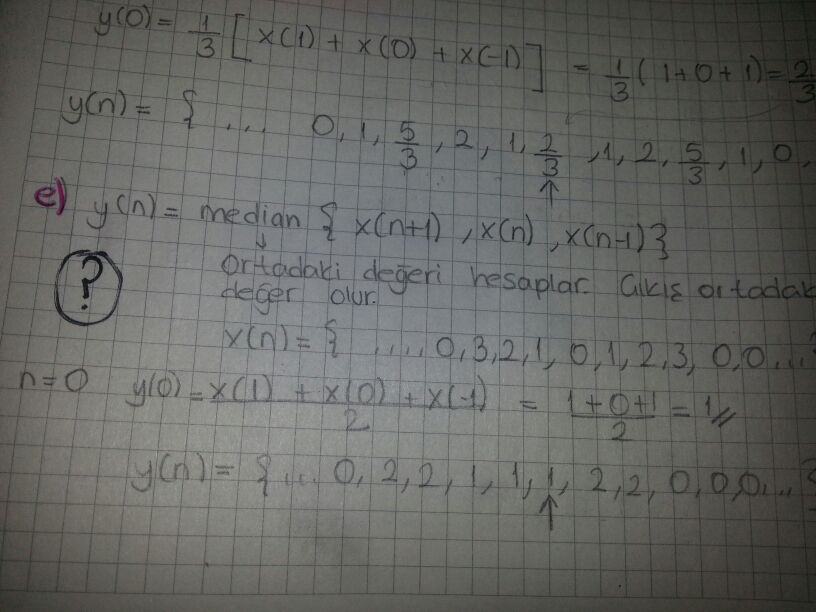 y(0) = 1/3 [ x(1) + x(0) + x(-1) ] = 1/3 ( 1+0+1) = 2/3
y(n) = { ... 0, 1, 5/3, 2, 1, 2/3, 1, 2, 5/3, 1, 0,
↑
e) y(n) = median { x(n+1) , x(n) , x(n-1) }
↓
? ortadaki değeri hesaplar. Çıkış ortadak
değer olur.
x(n) = { ...., 0, 3, 2, 1, 0, 1, 2, 3, 0, 0 ...}
n=0 y(0) = x(1) + x(0) + x(-1) / 2 = 1+0+1 / 2 = 1//
y(n) = { ... 0, 2, 2, 1, 1, 1, 2, 2, 0, 0, 0, ... }
↑